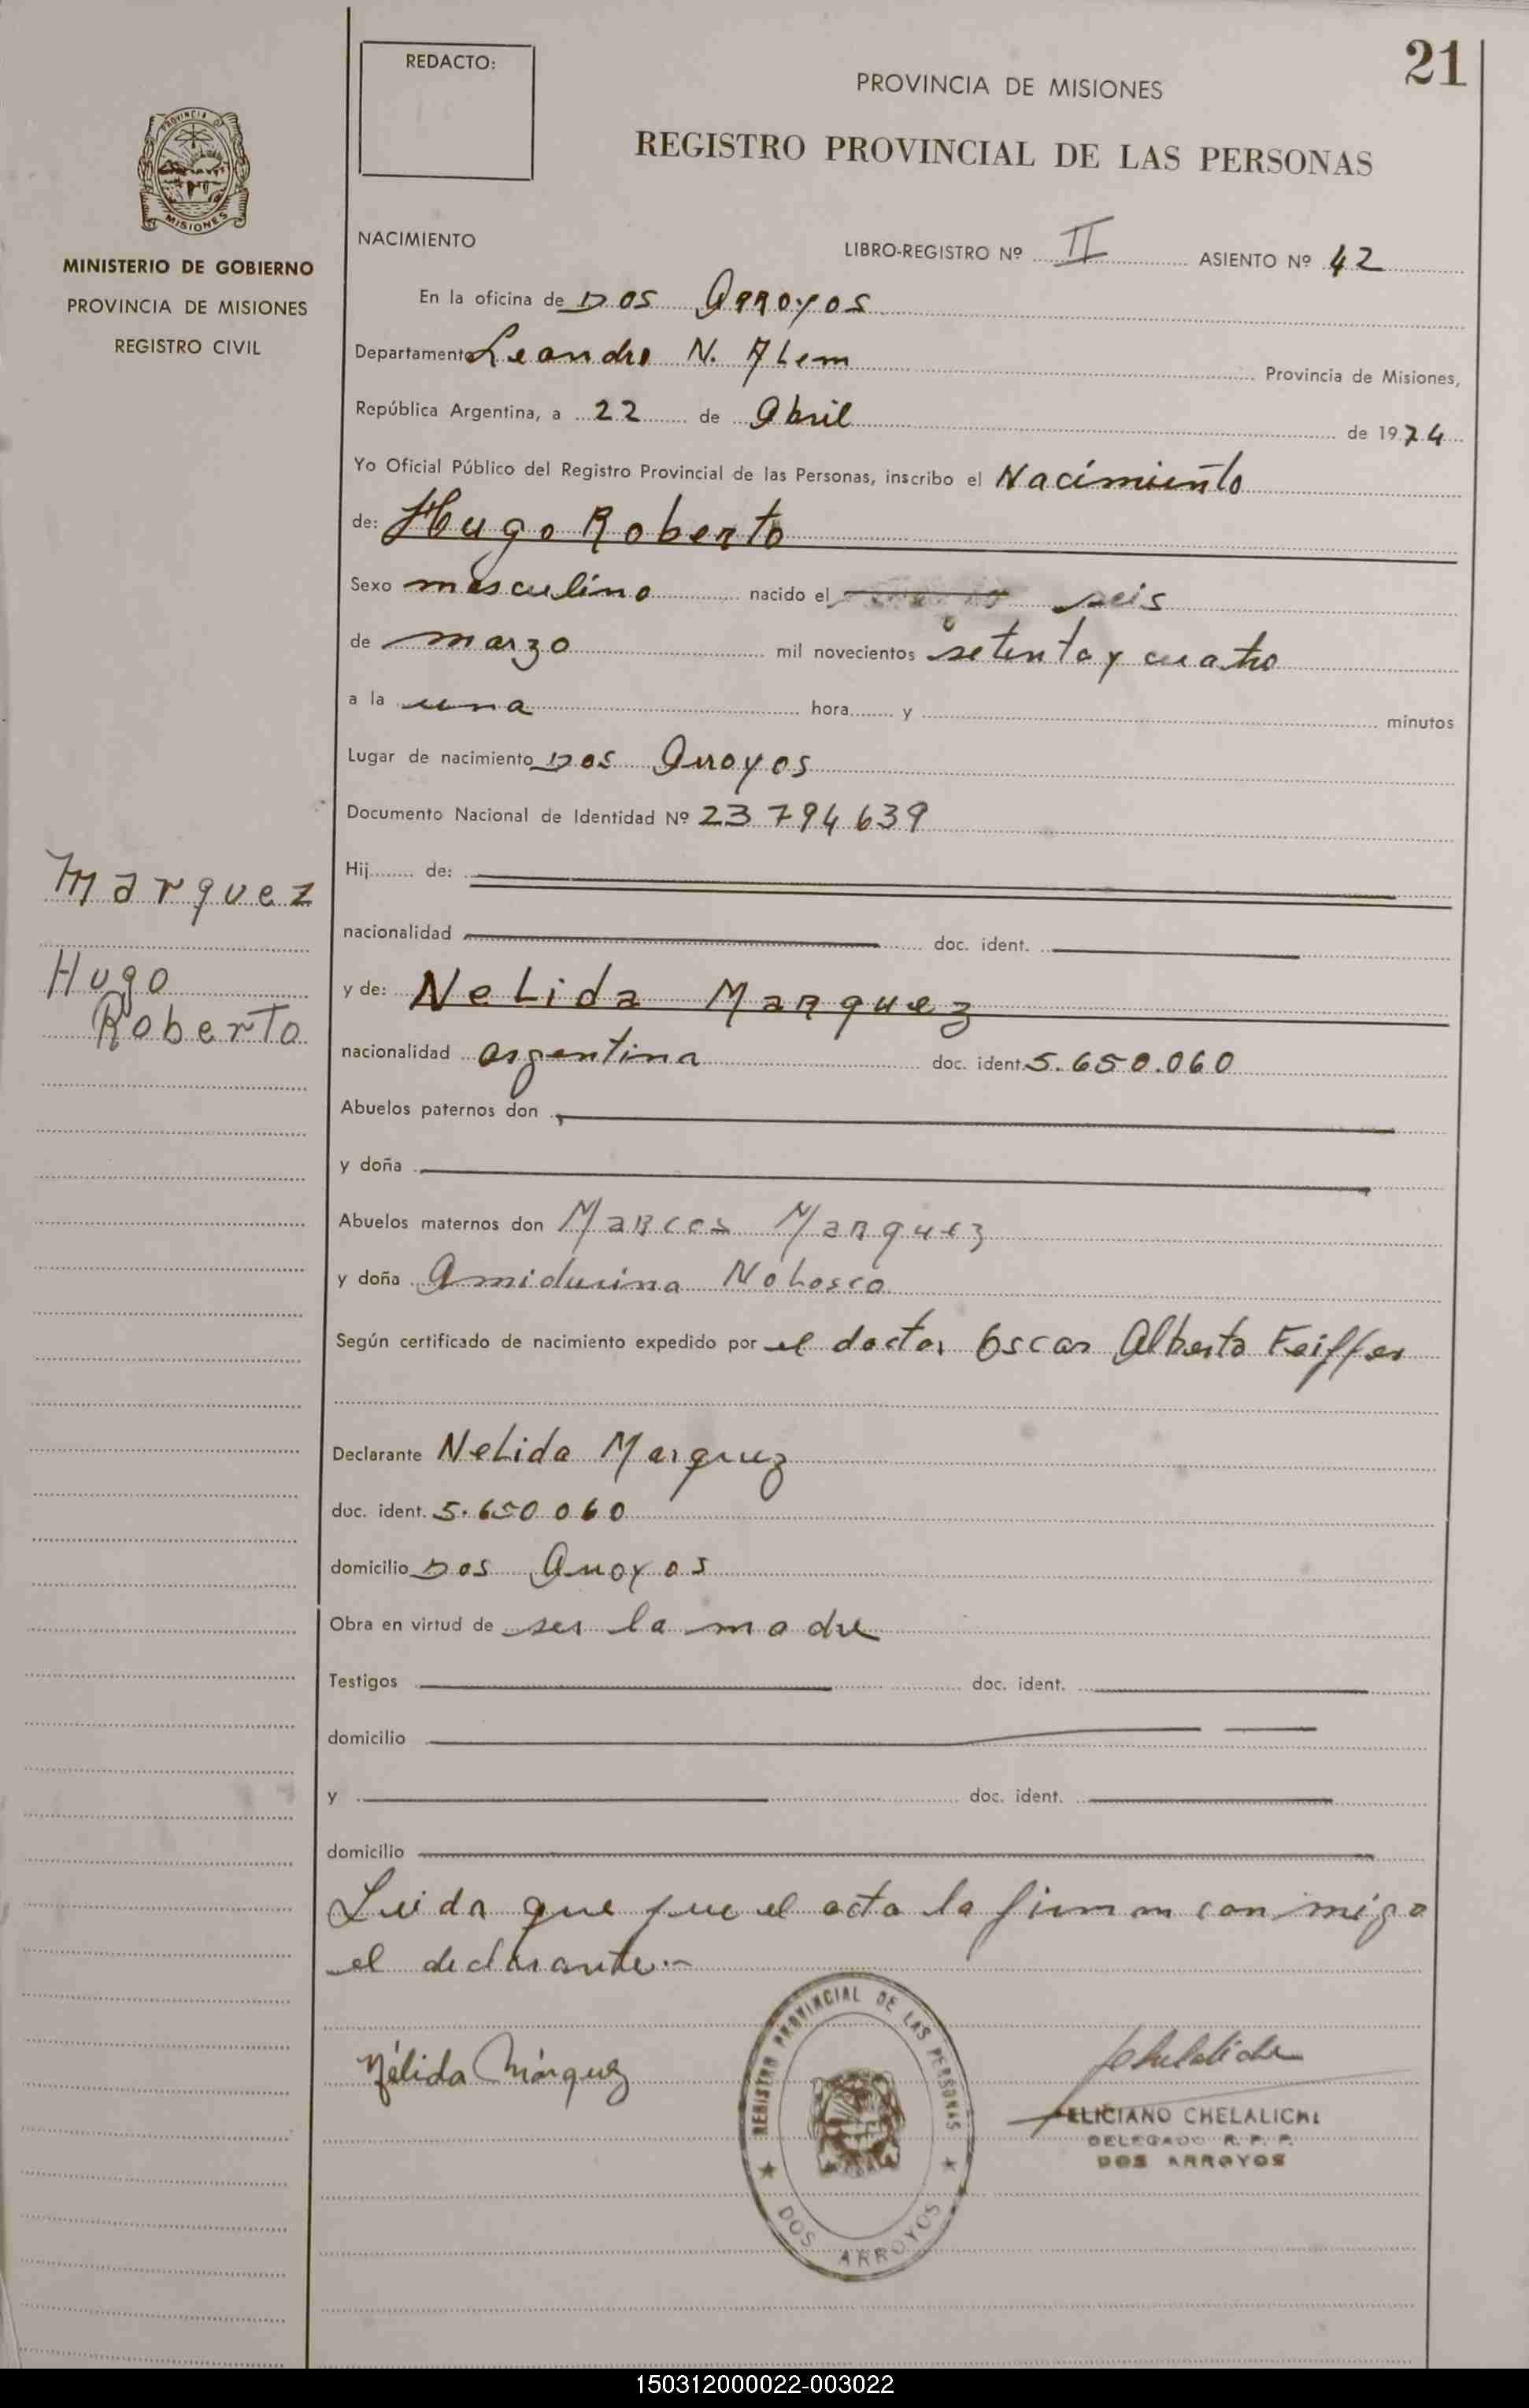 21
REDACTO:
PROVINCIA DE MISIONES
REGISTRO PROVINCIAL DE LAS PERSONAS
PROVINCIA D MISIONES
MINISTERIO DE GOBIERNO
PROVINCIA DE MISIONES
REGISTRO CIVIL
NACIMIENTO LIBRO-REGISTRO Nº II ASIENTO Nº 42
En la oficina de Dos Arroyos
Departamento Leandro N. Alem Provincia de Misiones,
República Argentina, a 22 de Abril de 1974
Yo Oficial Público del Registro Provincial de las Personas, inscribo el Nacimiento
de: Hugo Roberto
Sexo masculino nacido el seis
de marzo mil novecientos setenta y cuatro
a la una hora y minutos
Lugar de nacimiento Dos Arroyos
Documento Nacional de Identidad Nº 23 794 639
Hij de:
nacionalidad doc. ident.
y de: Nelida Marquez
nacionalidad argentina doc. ident. 5.650.060
Abuelos paternos don
y doña
Abuelos maternos don Marcos Marquez
y doña
Según certificado de nacimiento expedido por el doctor Oscar Alberto Feiffer
Declarante Nelida Marquez
doc. ident. 5.650 060
domicilio Dos Arroyos
Obra en virtud de ser la madre
Testigos doc. ident.
domicilio
y doc. ident.
domicilio
Leida que fue el acta la firman con migo
el declarante.-
Marquez
Hugo
Roberto
Nélida Márquez
REGISTRO PROVINCIAL DE LAS PERSONAS
DOS ARROYOS
FELICIANO CHELALICHE
DELEGADO R. P. P.
DOS ARROYOS
150312000022-003022